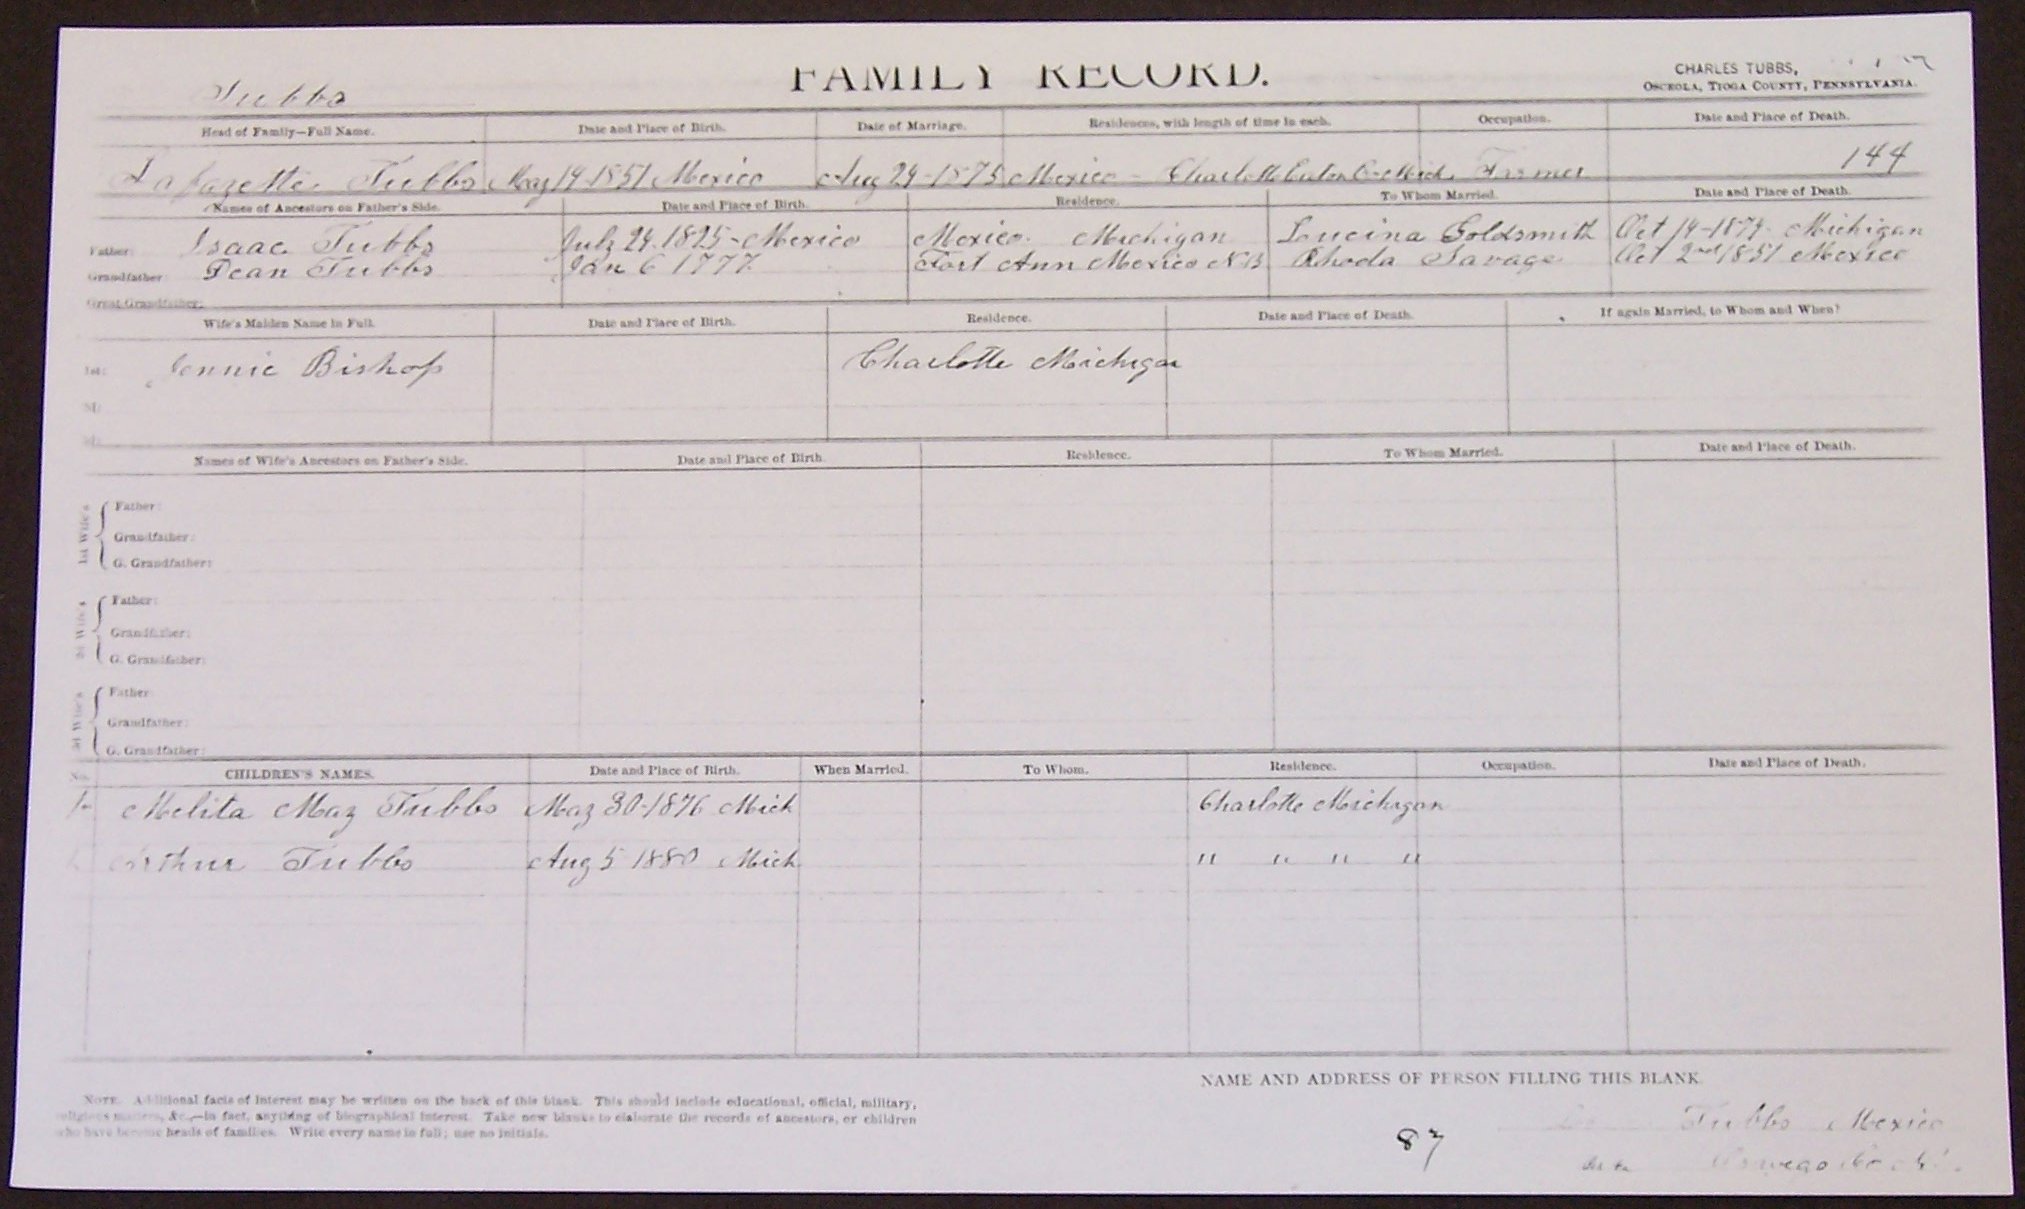 Tubbs
FAMILY RECORD.
CHARLES TUBBS,
OSCEOLA, TIOGA COUNTY, PENNSYLVANIA.
Head of Family—Full Name. Date and Place of Birth. Date of Marriage. Residences, with length of time in each. Occupation. Date and Place of Death.
Lafazette Tubbs May 19-1851 Mexico Aug 24-1875 Mexico - Charlotte Eaton Co Mich. Farmer 144
Names of Ancestors on Father's Side. Date and Place of Birth. Residence. To Whom Married. Date and Place of Death.
Father: Isaac Tubbs July 24. 1825-Mexico Mexico. Michigan Lucina Goldsmith Oct 19-1879. Michigan
Grandfather: Dean Tubbs Jan 6 1777 Fort Ann Mexico Rhoda Savage Oct 2nd 1851 Mexico
Great Grandfather:
Wife's Maiden Name in Full. Date and Place of Birth. Residence. Date and Place of Death. If again Married, to Whom and When?
1st: Jennie Bishop Charlotte Michigan
2d:
3d:
Names of Wife's Ancestors on Father's Side. Date and Place of Birth. Residence. To Whom Married. Date and Place of Death.
1st Wife's
Father:
Grandfather:
G. Grandfather:
2d Wife's
Father:
Grandfather:
G. Grandfather:
3d Wife's
Father:
Grandfather:
G. Grandfather:
No. CHILDREN'S NAMES. Date and Place of Birth. When Married. To Whom. Residence. Occupation. Date and Place of Death.
1 Melita May Tubbs May 30-1876 Mich Charlotte Michigan
Arthur Tubbs Aug 5 1880 Mich " " " "
NAME AND ADDRESS OF PERSON FILLING THIS BLANK.
NOTE. Additional facts of interest may be written on the back of this blank. This should include educational, official, military,
religious matters, &c.,—in fact, anything of biographical interest. Take new blanks to elaborate the records of ancestors, or children
who have become heads of families. Write every name in full; use no initials.
Tubbs Mexico
87
Oswego Co